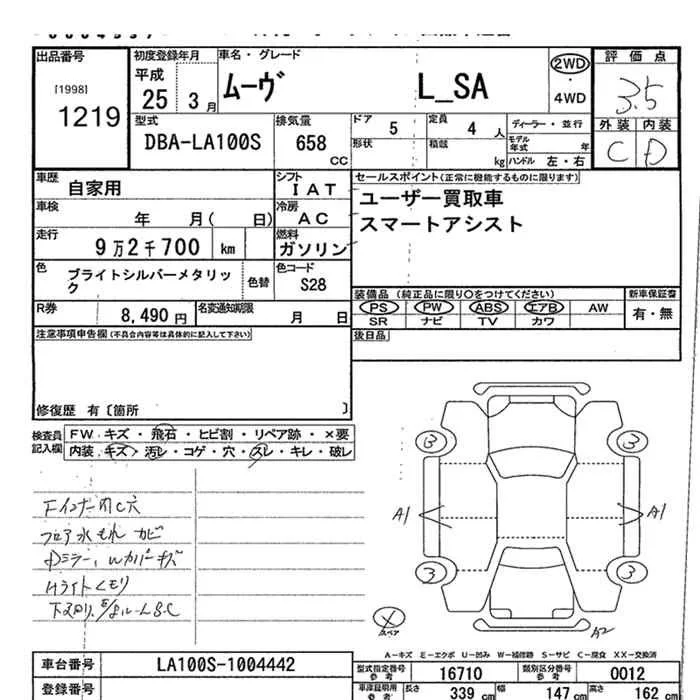 出品番号 初度登録年月 車名・グレード 2WD 評価点
[1998] 平成 ムーヴ L_SA 3.5
1219 25 3月 4WD 外装 内装
型式 排気量 ドア 5 定員 4 人 ディーラー・並行 C D
DBA-LA100S 658 cc 形状 積載 kg モデル年式 年 ハンドル 左・右
車歴 自家用 シフト IAT セールスポイント(正常に機能するものに限ります)
車検 年 月( 日) 冷房 AC ユーザー買取車
走行 9万2千700 km 燃料 ガソリン スマートアシスト
色 ブライトシルバーメタリック 色替 色コード S28
装備品(純正品に限り○をつけてください) 新車保証書
R券 8,490円 名変通知期限 月 日 PS PW ABS エアB AW 有・無
SR ナビ TV カワ
注意事項申告欄(不具合内容等は具体的に記入して下さい) 後日品
修復歴 有〔箇所 〕
検査員記入欄 FW キズ・飛石・ヒビ割・リペア跡・×要
内装 キズ・汚レ・コゲ・穴・スレ・キレ・破レ
3 3
Fインナー内C穴
A1 A1
フロア水もれ カビ
Dミラー、Wカバーキズ
3 3
Hライトクモリ
スペア A2
A-キズ E-エクボ U-凹み W-補修跡 S-サビ C-腐食 XX-交換済
車台番号 LA100S-1004442 型式指定番号 参考 16710 類別区分番号 参考 0012
登録番号 車庫証明用 参考 長さ 339 cm 幅 147 cm 高さ 162 cm